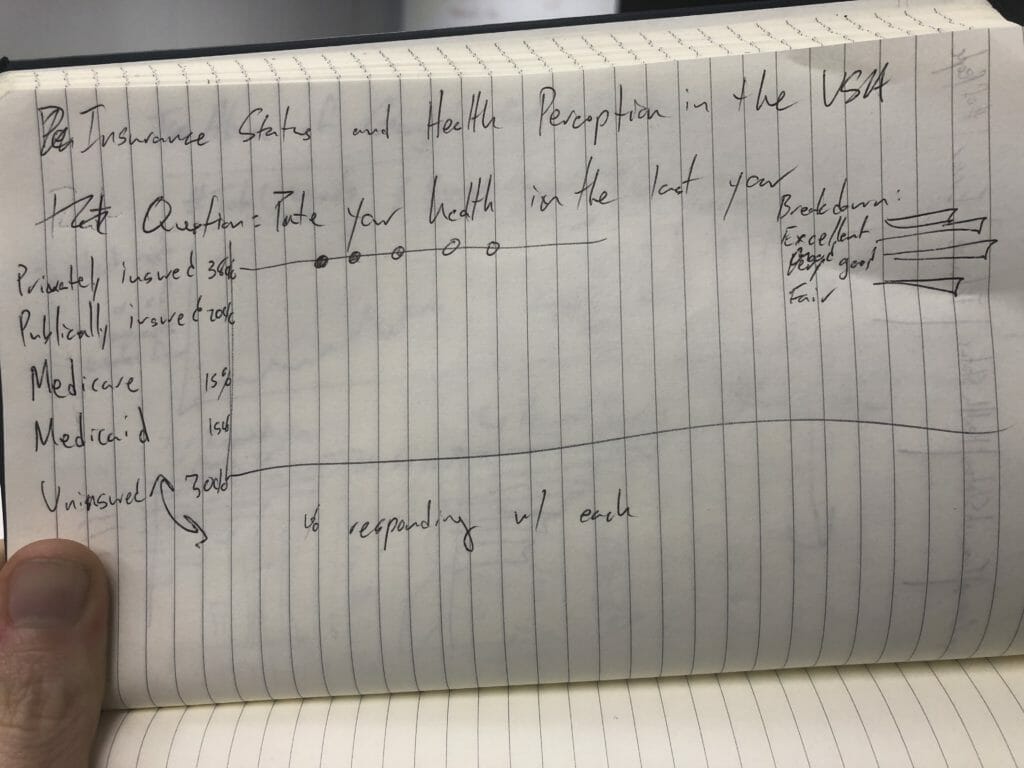 Insurance Status and Health Perception in the USA
Question: Rate your health in the last year
Breakdown:
Excellent
Very good
Fair
Privately insured
Publically insured 20%
Medicare 15%
Medicaid 15%
Uninsured 30%
% responding w/ each